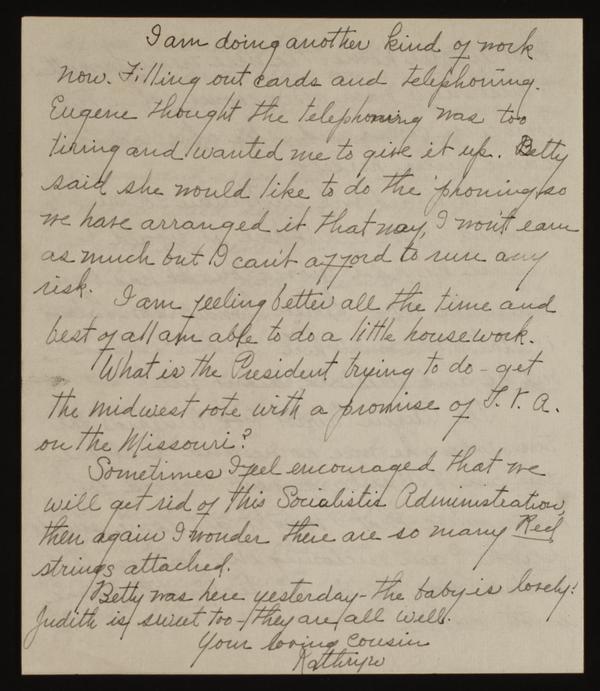 I am doing another kind of work
now. Filling out cards and telephoning.
Eugene thought the telephoning was too
tiring and wanted me to give it up. Betty
said she would like to do the 'phoning, so
we have arranged it that way, I won't earn
as much but I can't afford to run any
risk. I am feeling better all the time and
best of all am able to do a little housework.
What is the President trying to do - get
the midwest vote with a promise of T. V. A.
on the Missouri?
Sometimes I feel encouraged that we
will get rid of this Socialistic Administration,
then again I wonder there are so many Red
strings attached.
Betty was here yesterday - the baby is lovely!
Judith is sweet too - they are all well.
Your loving cousin
Kathryn